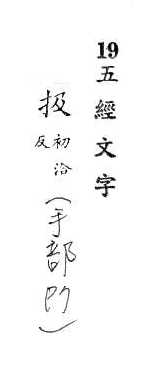 19 五經文字
扱 初洽反 (手部 P7)